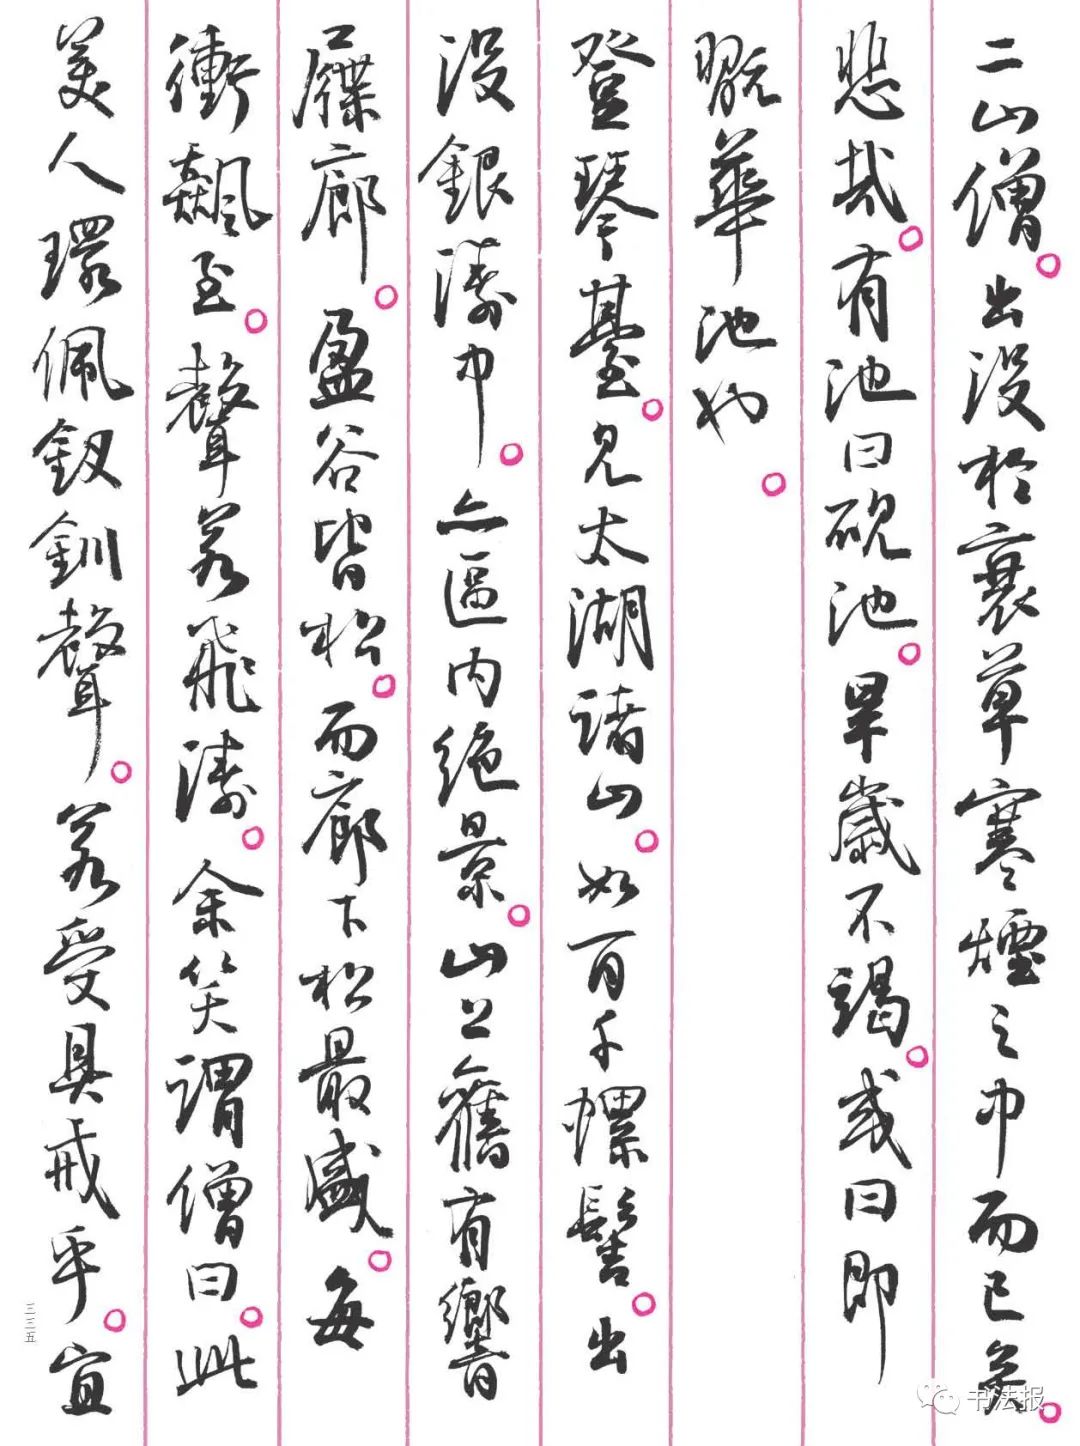 二山僧。出没於衰草寒煙之中而已矣。
悲哉。有池曰硯池。旱歲不竭。或曰即
翫華池也。
登琴臺。見太湖諸山。如百千螺髻。出
没銀濤中。亦區内絶景。山上舊有響
屧廊。盈谷皆松。而廊下松最盛。每
衝飆至。聲若飛濤。余笑謂僧曰。此
美人環佩釵釧聲。若受具戒乎。宜
三三五
书法报